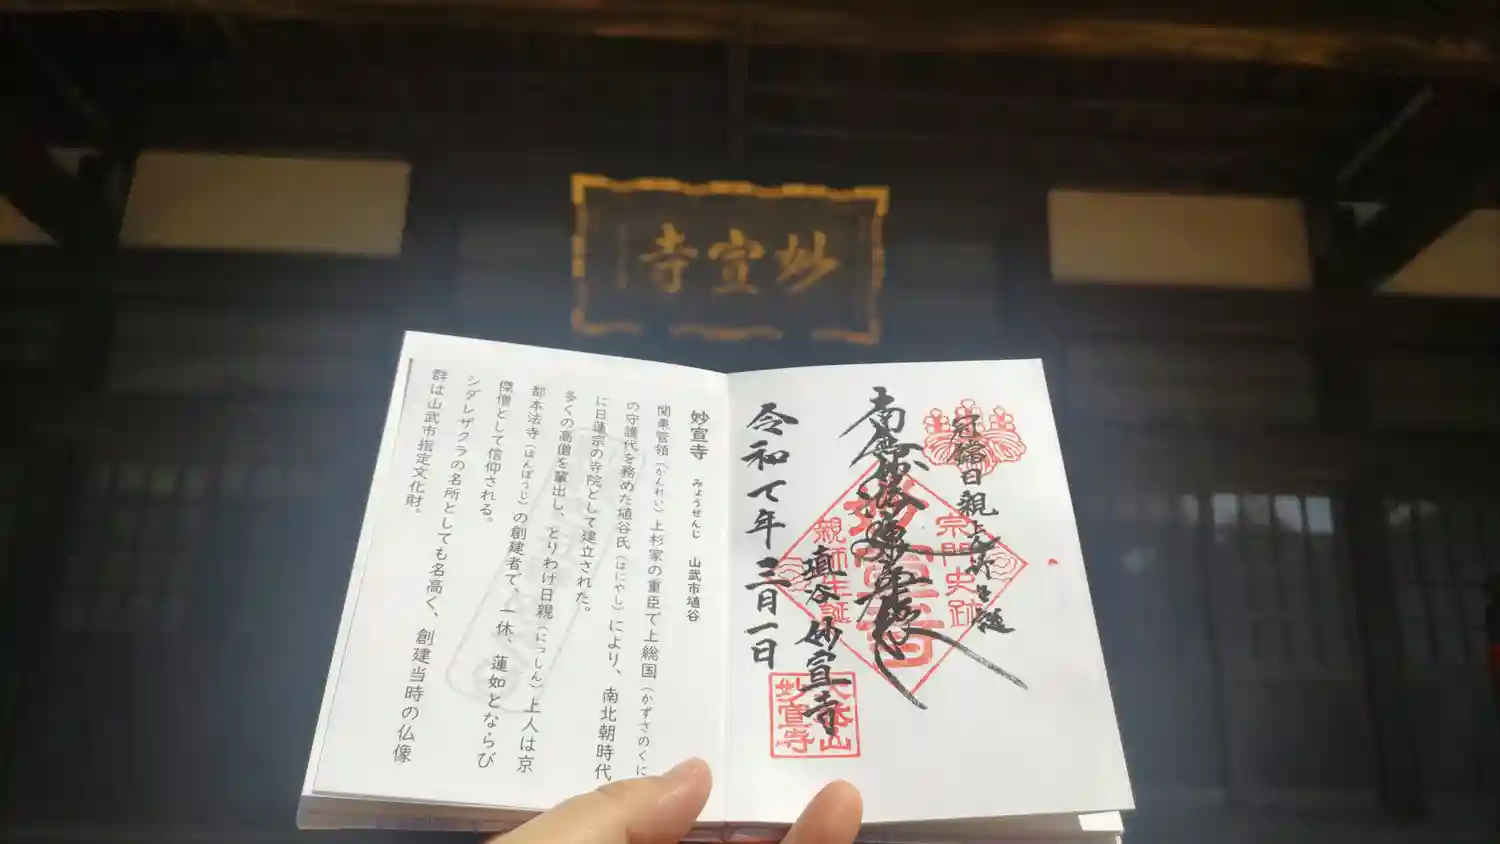 妙宣寺
妙宣寺 みょうせんじ 山武市埴谷
関東管領（かんれい）上杉家の重臣で上総国（かずさのくに
の守護代を務めた埴谷氏（はにやし）により、南北朝時代
に日蓮宗の寺院として建立された。
多くの高僧を輩出し、とりわけ日親（にっしん）上人は京
都本法寺（ほんぽうじ）の創建者で、一休、蓮如とならび
傑僧として信仰される。
シダレザクラの名所としても名高く、創建当時の仏像
群は山武市指定文化財。
冠鐺日親上人
南無妙法蓮華経
宗門史跡
親師生誕
埴谷 妙宣寺
妙宣寺
令和 年 三月一日